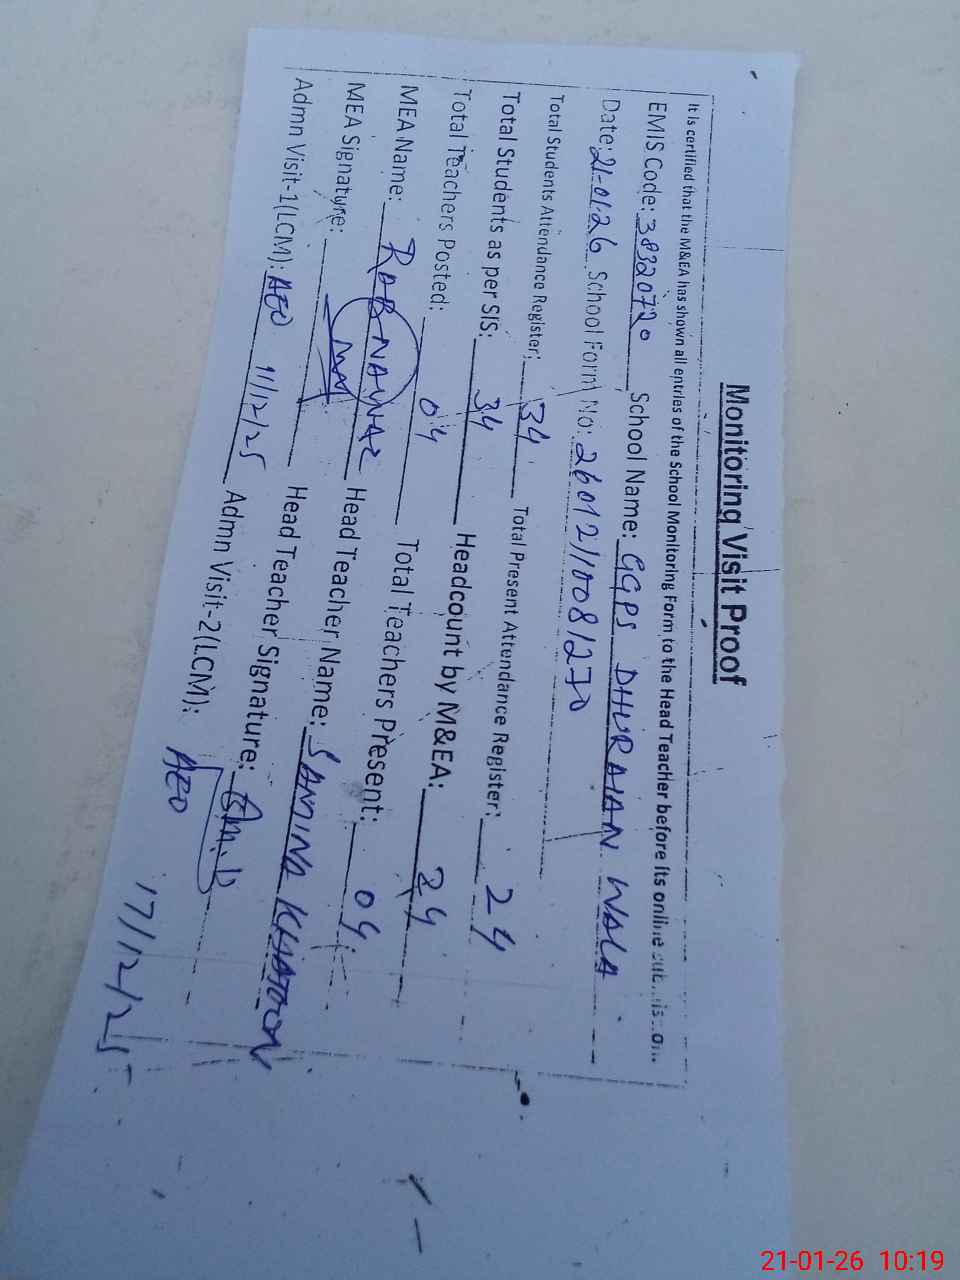 Monitoring Visit Proof
It is certified that the M&EA has shown all entries of the School Monitoring Form to the Head Teacher before its online
EMIS Code: 38320720 School Name: GGPS DHURAHAN WALA
Date: 21-01-26 School Form No: 26012110081270
Total Students Attendance Register: 34 Total Present Attendance Register: 24
Total Students as per SIS: 34 Headcount by M&EA: 24
Total Teachers Posted: 04 Total Teachers Present: 04
MEA Name: RAB NAWAZ Head Teacher Name: SAMINA KHATOON
MEA Signature: Head Teacher Signature:
Admn Visit-1(LCM): AEO 11/12/25 Admn Visit-2(LCM): AEO 17/12/25
21-01-26 10:19